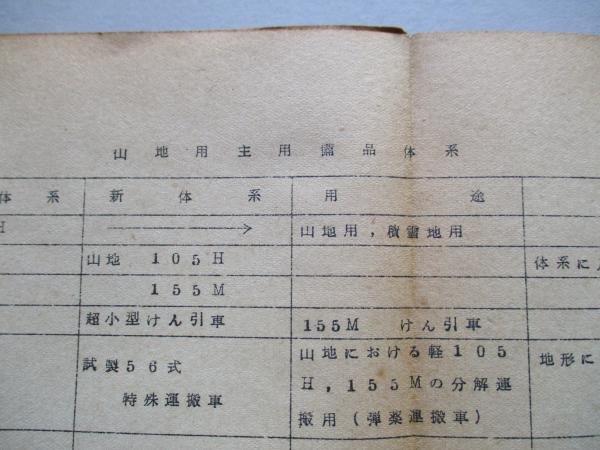 山地用主用備品体系
体系 新体系 用途
H ─────→ 山地用，積雪地用
山地 105H 体系に
155M
超小型けん引車 155M けん引車
山地における軽105 地形に
試製56式 H，155Mの分解運
特殊運搬車 搬用（弾薬運搬車）